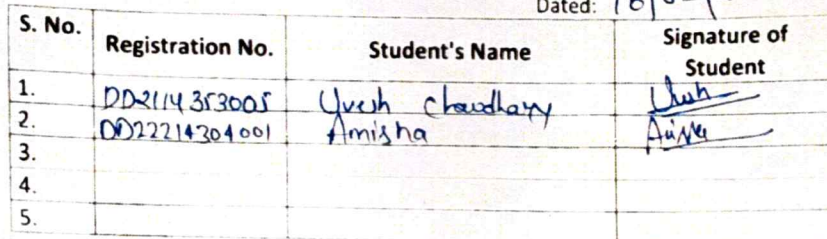 Dated:
S. No. Registration No. Student's Name Signature of Student
1. DD2114353005 Uvesh Chaudhary
2. DD22214304001 Amisha
3.
4.
5.